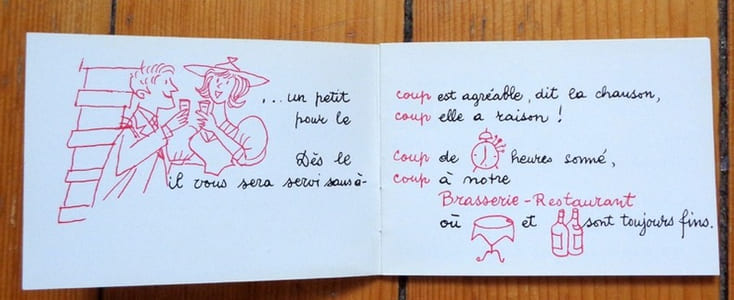 ...un petit coup est agréable, dit la chanson,
pour le coup elle a raison !
Dès le coup de heures sonné,
il vous sera servi sans à- coup à notre
Brasserie-Restaurant
où et sont toujours fins.